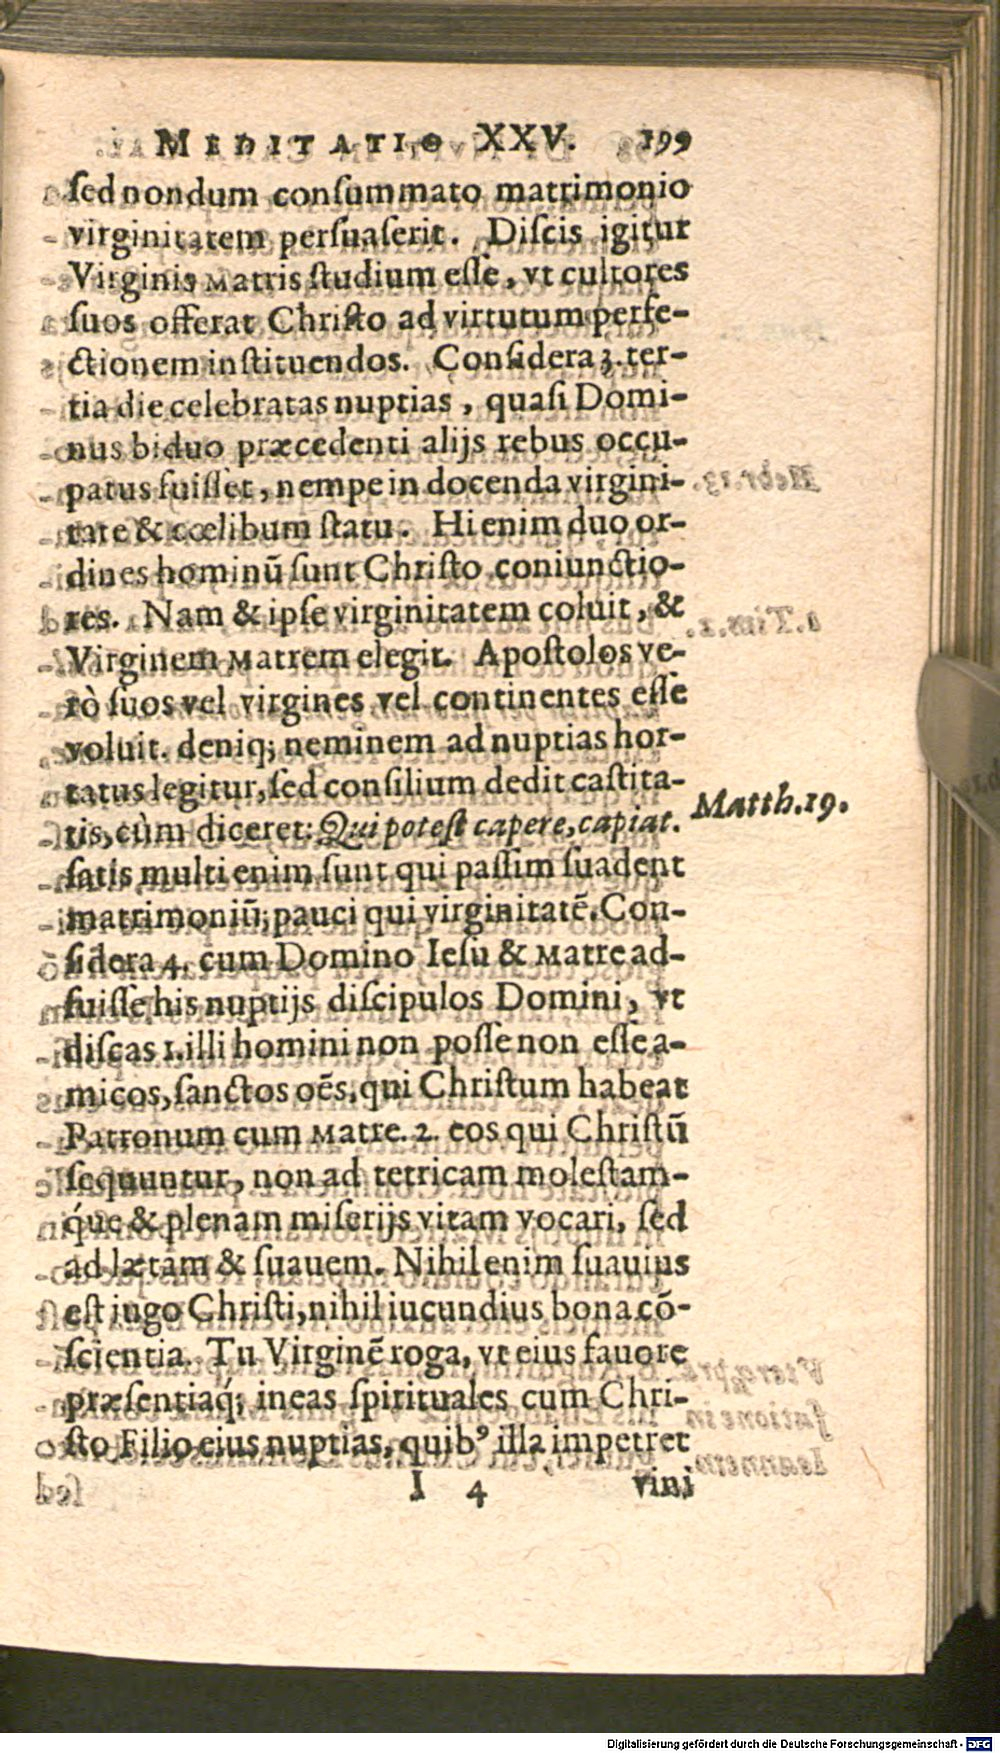 MEDITATIO XXV. 199
ſed nondum conſummato matrimonio
virginitatem perſuaſerit. Diſcis igitur
Virginis MAtris ſtudium eſſe, vt cultores
ſuos offerat Chriſto ad virtutum perfe-
ctionem inſtituendos. Conſidera 3. ter-
tia die celebratas nuptias, quaſi Domi-
nus biduo præcedenti alijs rebus occu-
patus fuiſſet, nempe in docenda virgini-
tate & cœlibum ſtatu. Hi enim duo or-
dines hominū ſunt Chriſto coniunctio-
res. Nam & ipſe virginitatem coluit, &
Virginem MAtrem elegit. Apoſtolos ve-
rò ſuos vel virgines vel continentes eſſe
voluit. deniq; neminem ad nuptias hor-
tatus legitur, ſed conſilium dedit caſtita-
tis, cùm diceret: Qui poteſt capere, capiat.
Matth. 19.
ſatis multi enim ſunt qui paſſim ſuadent
matrimoniū, pauci qui virginitatē. Con-
ſidera 4. cum Domino Ieſu & MAtre ad-
fuiſſe his nuptijs diſcipulos Domini, vt
diſcas 1. illi homini non poſſe non eſſe a-
micos, ſanctos oēs, qui Chriſtum habeat
Patronum cum MAtre. 2. eos qui Chriſtū
ſequuntur, non ad tetricam moleſtam-
q́ue & plenam miſerijs vitam vocari, ſed
ad lætam & ſuauem. Nihil enim ſuauius
eſt iugo Chriſti, nihil iucundius bona cō-
ſcientia. Tu Virginē roga, vt eius fauore
præſentiaq́; ineas ſpirituales cum Chri-
ſto Filio eius nuptias, quibꝰ illa impetret
I 4 vini
Digitalisierung gefördert durch die Deutsche Forschungsgemeinschaft - DFG